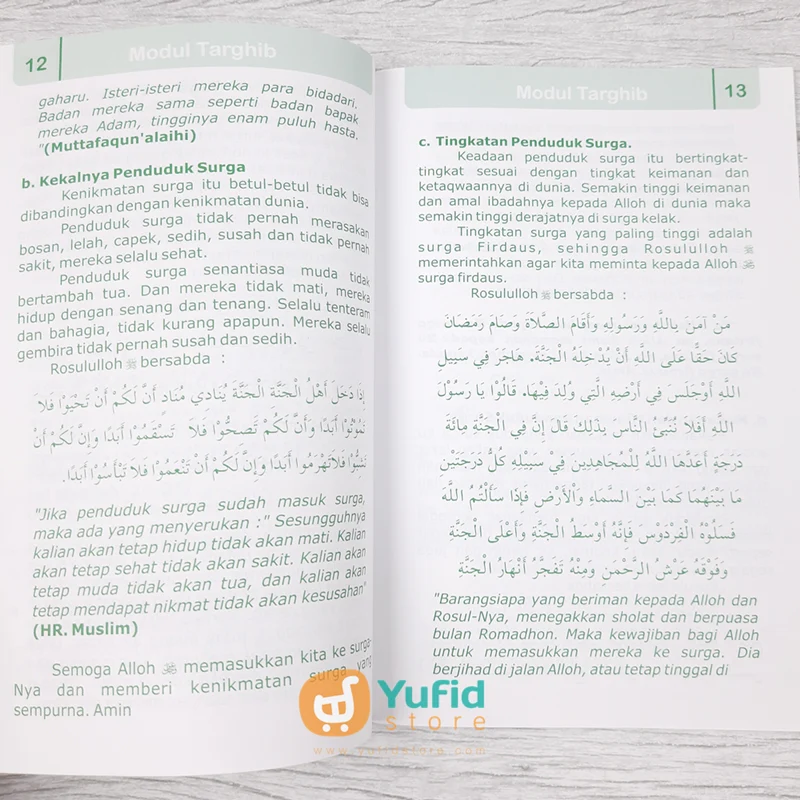 12
Modul Targhib
gaharu. Isteri-isteri mereka para bidadari.
Badan mereka sama seperti badan bapak
mereka Adam, tingginya enam puluh hasta.
"(Muttafaqun'alaihi)
b. Kekalnya Penduduk Surga
Kenikmatan surga itu betul-betul tidak bisa
dibandingkan dengan kenikmatan dunia.
Penduduk surga tidak pernah merasakan
bosan, lelah, capek, sedih, susah dan tidak pernah
sakit, mereka selalu sehat.
Penduduk surga senantiasa muda tidak
bertambah tua. Dan mereka tidak mati, mereka
hidup dengan senang dan tenang. Selalu tenteram
dan bahagia, tidak kurang apapun. Mereka selalu
gembira tidak pernah susah dan sedih.
Rosululloh ﷺ bersabda :
إِذَا دَخَلَ أَهْلُ الْجَنَّةِ الْجَنَّةَ يُنَادِي مُنَادٍ أَنَّ لَكُمْ أَنْ تَحْيَوْا فَلَا
تَمُوْتُوْا أَبَدًا وَأَنَّ لَكُمْ تَصِحُّوْا فَلَا تَسْقَمُوْا أَبَدًا وَإِنَّ لَكُمْ أَنْ
تَشِبُّوْا فَلَاتَهْرَمُوْا أَبَدًا وَإِنَّ لَكُمْ أَنْ تَنْعَمُوْا فَلَا تَبْأَسُوْا أَبَدًا.
"Jika penduduk surga sudah masuk surga,
maka ada yang menyerukan :" Sesungguhnya
kalian akan tetap hidup tidak akan mati. Kalian
akan tetap sehat tidak akan sakit. Kalian akan
tetap muda tidak akan tua, dan kalian akan
tetap mendapat nikmat tidak akan kesusahan"
(HR. Muslim)
Semoga Alloh ﷻ memasukkan kita ke surga-
Nya dan memberi kenikmatan surga yang
sempurna. Amin
Modul Targhib
13
c. Tingkatan Penduduk Surga.
Keadaan penduduk surga itu bertingkat-
tingkat sesuai dengan tingkat keimanan dan
ketaqwaannya di dunia. Semakin tinggi keimanan
dan amal ibadahnya kepada Alloh di dunia maka
semakin tinggi derajatnya di surga kelak.
Tingkatan surga yang paling tinggi adalah
surga Firdaus, sehingga Rosululloh ﷺ
memerintahkan agar kita meminta kepada Alloh ﷻ
surga firdaus.
Rosululloh ﷺ bersabda :
مَنْ آمَنَ بِاللَّهِ وَرَسُولِهِ وَأَقَامَ الصَّلَاةَ وَصَامَ رَمَضَانَ
كَانَ حَقًّا عَلَى اللَّهِ أَنْ يُدْخِلَهُ الْجَنَّةَ. هَاجَرَ فِي سَبِيلِ
اللَّهِ أَوْجَلَسَ فِي أَرْضِهِ الَّتِي وُلِدَ فِيهَا. قَالُوْا يَا رَسُوْلَ
اللَّهِ أَفَلَا نُنَبِّئُ النَّاسَ بِذَلِكَ قَالَ إِنَّ فِي الْجَنَّةِ مِائَةَ
دَرَجَةٍ أَعَدَّهَا اللَّهُ لِلْمُجَاهِدِينَ فِيْ سَبِيْلِهِ كُلُّ دَرَجَتَيْنِ
مَا بَيْنَهُمَا كَمَا بَيْنَ السَّمَاءِ وَالْأَرْضِ فَإِذَا سَأَلْتُمُ اللَّهَ
فَسَلُوْهُ الْفِرْدَوْسَ فَإِنَّهُ أَوْسَطُ الْجَنَّةِ وَأَعْلَى الْجَنَّةِ
وَفَوْقَهُ عَرْشُ الرَّحْمَنِ وَمِنْهُ تَفَجَّرُ أَنْهَارُ الْجَنَّةِ
"Barangsiapa yang beriman kepada Alloh dan
Rosul-Nya, menegakkan sholat dan berpuasa
bulan Romadhon. Maka kewajiban bagi Alloh
untuk memasukkan mereka ke surga. Dia
berjihad di jalan Alloh, atau tetap tinggal di
Yufid
store
www.yufidstore.com